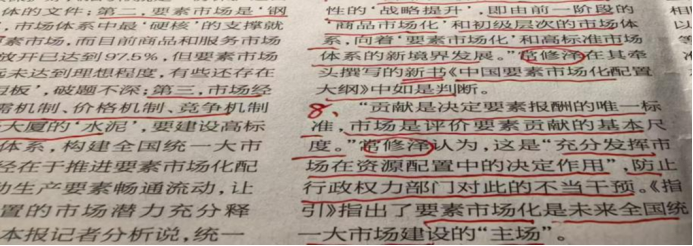 体的文件；第二，要素市场是‘钢
，市场体系中最‘硬核’的支撑就
素市场，而目前商品和服务市场
放开已达到97.5%，但要素市场
远未达到理想程度，有些还存在
短板’，破题不深；第三，市场经
需机制、价格机制、竞争机制
大厦的‘水泥’，要建设高标
体系，构建全国统一大市
经在于推进要素市场化配
动生产要素畅通流动，让
置的市场潜力充分释
本报记者分析说，统一
性的‘战略提升’，即由前一阶段的
‘商品市场化’和初级层次的市场体
系，向着‘要素市场化’和高标准市场
体系的新境界发展。”常修泽在其牵
头撰写的新书《中国要素市场化配置
大纲》中如是判断。
8、
“贡献是决定要素报酬的唯一标
准，市场是评价要素贡献的基本尺
度。”常修泽认为，这是“充分发挥市
场在资源配置中的决定作用”，防止
行政权力部门对此的不当干预。《指
引》指出了要素市场化是未来全国统
一大市场建设的“主场”。
相
以
等